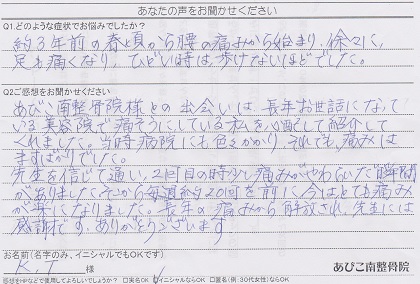 あなたの声をお聞かせください
Q1.どのような症状でお悩みでしたか?
約3年前の春頃から腰の痛みから始まり、徐々に、
足も痛くなり、ひどい時は歩けないほどでした。
Q2ご感想をお聞かせください
あびこ南整骨院様との出会いは、長年お世話になって
いる美容院で痛そうにしている私を心配して紹介して
くれました。当時病院にも色々かかり、それでも、痛みは
ますばかりでした。
先生を信じて通い、2回目の時少し痛みがやわらいだ瞬間
がありました。そこから毎週約20回を前に、今はとても痛み
が楽になりました。長年の痛みから解放され、先生には
感謝です。ありがとうございます
お名前(名字のみ、イニシャルでもOKです)
K.T 様
あびこ南整骨院
感想をHPなどで使用してよろしいでしょうか? □実名OK ☑イニシャルならOK □匿名(例:30代女性)ならOK